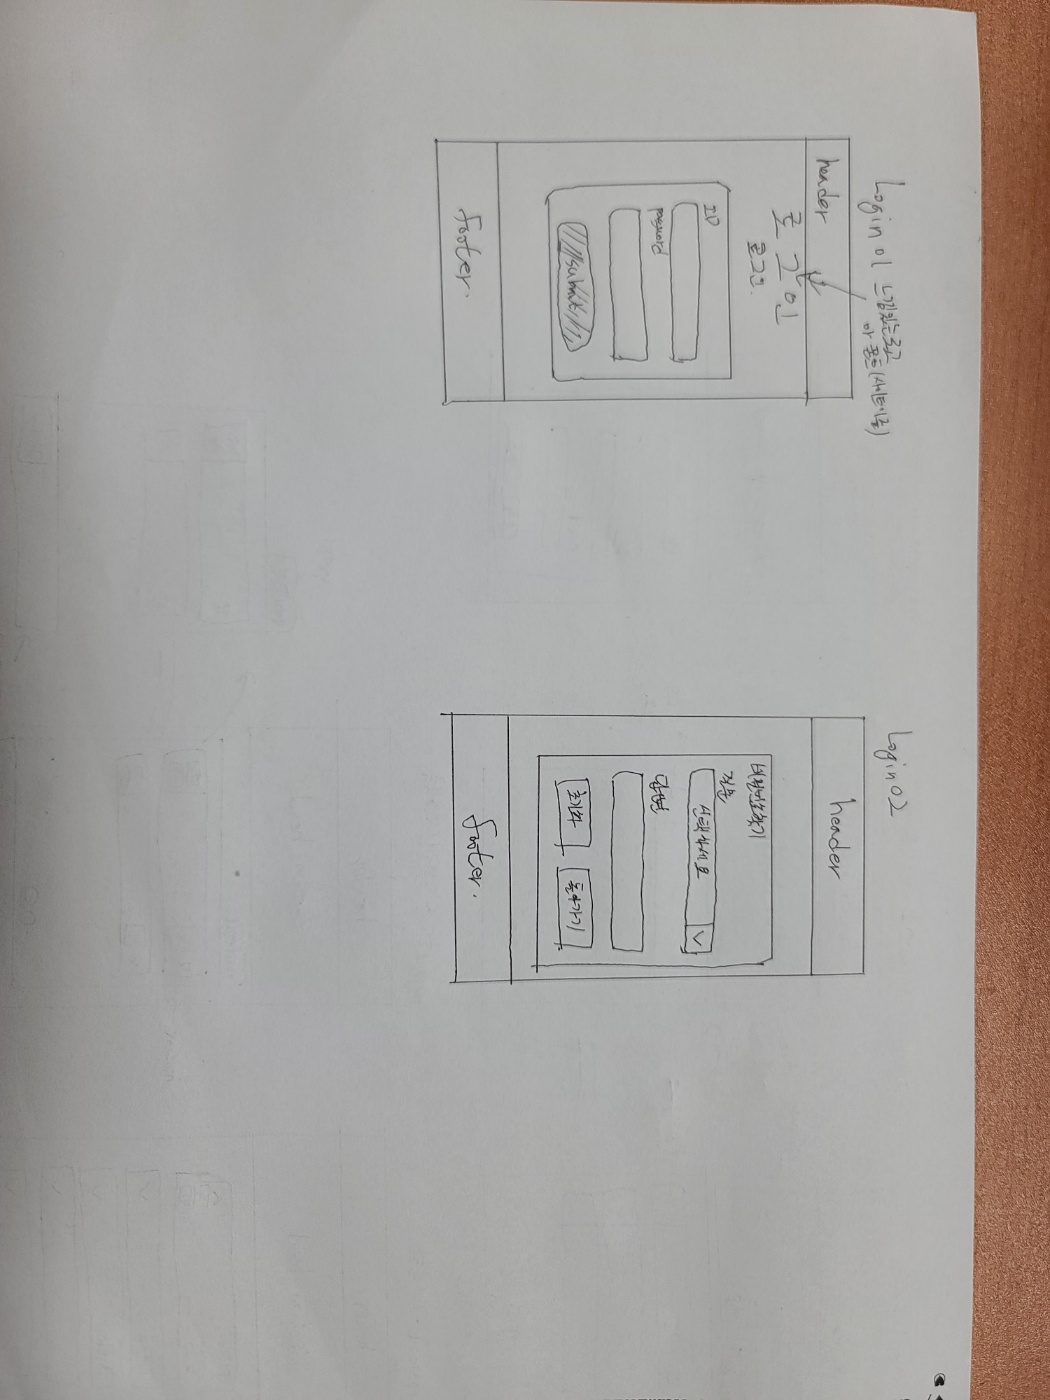 Login 01 느낌있는로고
header
로그인
로그인.
ID
password
submit
footer.
Login 02
header
비밀번호찾기
질문
선택하세요
답변
초기화
footer.